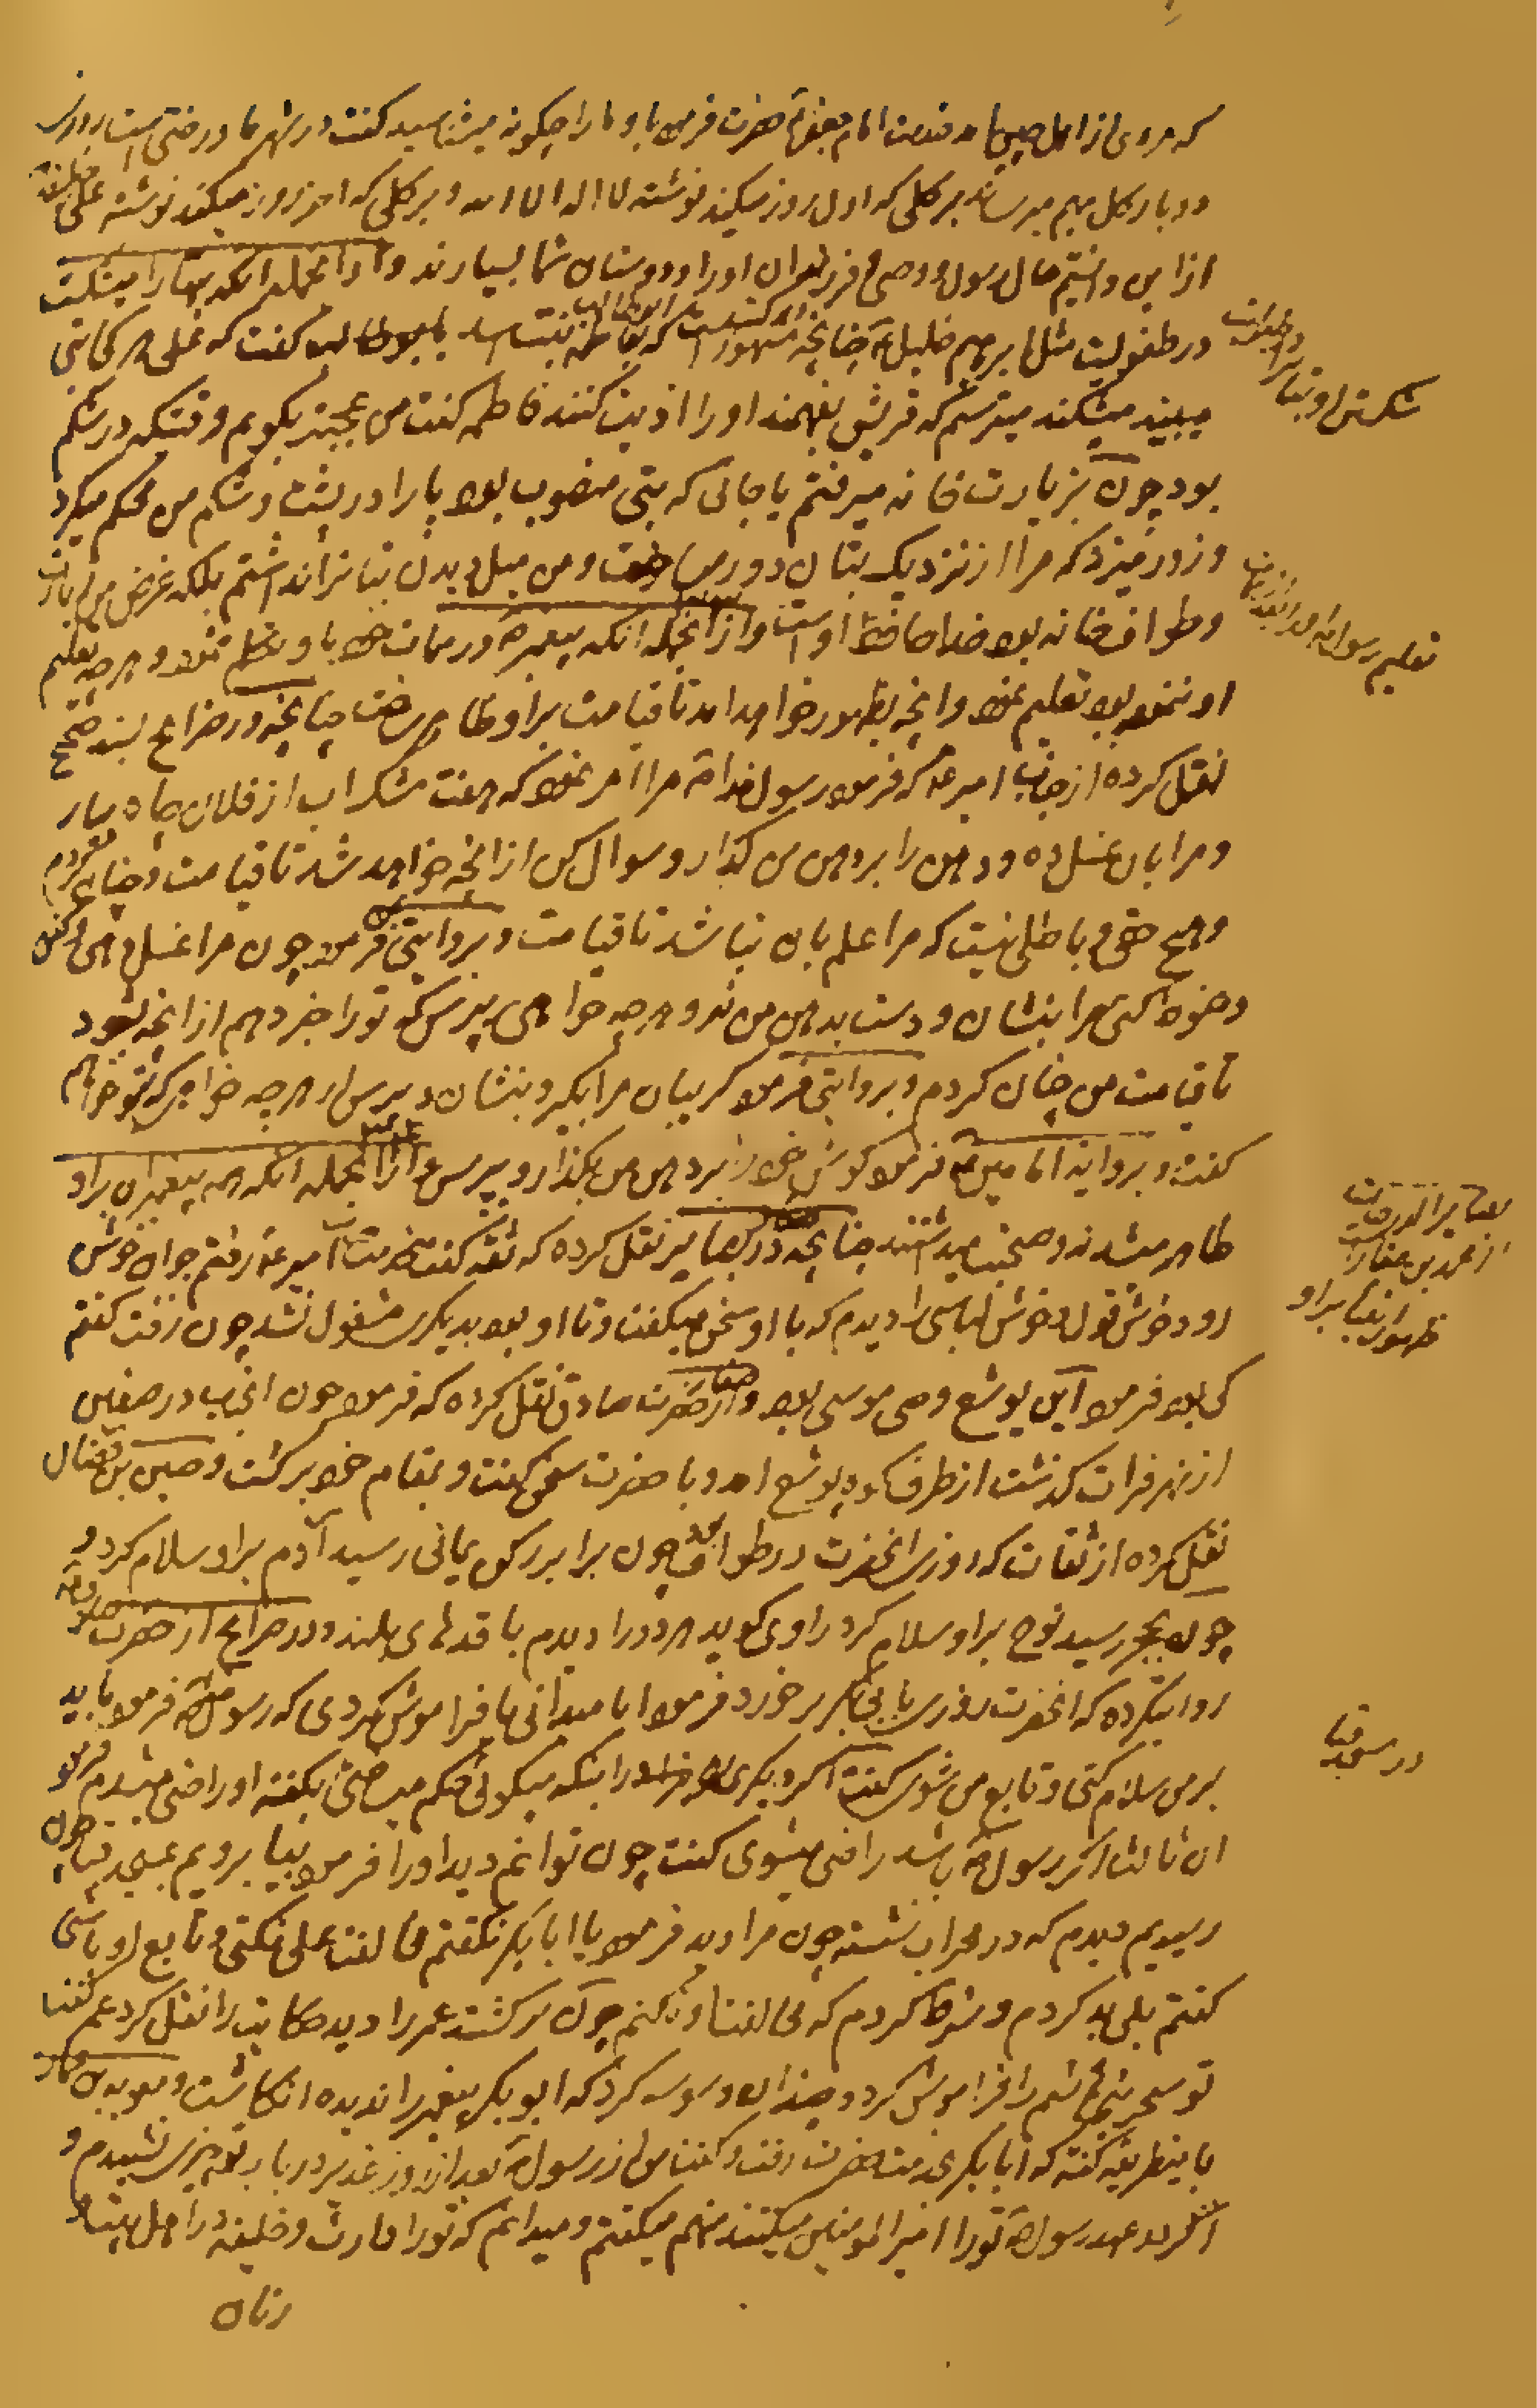 که مردی از اهل چین بخدمت امام جعفر آمد حضرت فرمود باو ما را چکونه میشناسید کفت در شهر ما درختی است روزی
دو بار کل بهم میرساند بر کلی که اول روز میکند نوشته لا اله الا الله و بر کلی که اخر روز میکند نوشته علی خلیفة
از این دانستیم حال رسول و وصی و فرزندان او را و دوستان شما بسیارند و از انجمله انکه بتها را میشکست
در طفولیت مثل ابرهیم خلیل چنانچه مشهور است که فاطمه بنت اسد بابوطالب کفت که علی هر کجا بتی
میبیند میشکند میترسم که قریش بفهمند او را اذیت کنند فاطمه کفت من عجبتر بکویم وقتیکه در شکم
بود چون بزیارت خانه میرفتم یا جائی که بتی منصوب بود پا را در پشت و شکم من محکم میکرد
و زور میزد که مرا از نزدیک بتان دور میساخت و من میل دیدن بتانرا نداشتم بلکه غرض من زیارت
و طواف خانه بود خدا حافظ اوست و از انجمله انکه پیغمبر در ممات خود با او تکلم نمود و هر چه تعلیم
او ننموده بود تعلیم نمود و انچه بظهور خواهد امد تا قیامت بر او ظاهر ساخت چنانچه در خرایج بسند صحیح
نقل کرده از جناب امیر که فرمود رسول خدا مرا امر نمود که هفت مشک اب از فلان چاه بیار
و مرا بان غسل ده و دهن را بر دهن من کذار و سوال کن از انچه خواهد شد تا قیامت و چنان کردم
و هیچ حق و باطلی نیست که مرا علم بان نباشد تا قیامت و بروایتی فرمود چون مرا غسل دهی و کفن
و حنوط کنی مرا بنشان و دست بدهن من نه و هر چه خواهی بپرس که تو را خبر دهم از انچه بشود
تا قیامت من چنان کردم و بروایتی فرمود کریبان مرا بکیر و بنشان و بپرس از هر چه خواهی که بتو خواهم
کفت و بروایة امامین فرمود کوش خود را بر دهن من بکذار و بپرس و از انجمله انکه همه پیغمبران بر او
ظاهر میشدند و صحبت میداشتند چنانچه در بصایر نقل کرده که ثقه کفت بخدمت امیر رفتم جوان خوش
رو و خوش قول و خوش لباسی را دیدم که با او سخن میکفت و تا او بود بدیکری مشغول نشد چون رفت کفتم
کی بود فرمود این یوشع وصی موسی بود و از حضرت صادق نقل کرده که فرمود چون انجناب در صفین
از نهر فرات کذشت از طرف کوه یوشع امد و با حضرت سخن کفت و بمقام خود برکشت و حسین بن
نقل کرده از ثقات که روزی انحضرت در طواف بود چون برابر رکن یمانی رسید آدم بر او سلام کرد و
چون بحجر رسید نوح بر او سلام کرد راوی کوید هر دو را دیدم با قدهای بلند و در خرایج از حضرت صادق
روایتکرده که انحضرت روزی بابی بکر برخورد فرمود ایا میدانی یا فراموش کردی که رسول فرمود باید
بر من سلام کنی و تابع من شوی کفت اکر دیکری در اینکه میکوئی حکم میساختی بکفته او راضی میشدم فرمود
ان ثالث اکر رسول باشد راضی میشوی کفت چون توانم دید او را فرمود بیا برویم بمسجد قبا چون
رسیدیم دیدم که در محراب نشسته چون مرا دید فرمود یا ابا بکر نکفتم مخالفت علی نکنی و تابع او باشی
کفتم بلی بد کردم و شرط کردم که مخالفت او نکنم چون برکشت عمر را دید حکایت را نقل کرد عمر کفت
تو سحر بنی هاشم را فراموش کرده و چندان وسوسه کرد که ابو بکر پیغمبر را ندیده انکاشت و
باینطریق کفته که ابا بکر بخدمت حضرت رفت و کفت من از رسول بعد از روز غدیر در باب تو چیزی نشنیدم و
اکر در عهد رسول تو را امیر المومنین میکفتند منهم میکفتم و میدانم که تو را وارث و خلیفه در اهل بیت و
زنان
شکستن او بتها را در طفولیت
تعلیم رسول او را بعد از ممات
بصایر الدرجات
از محمد بن صفار است
ظهور انبیا بر او
در مسجد قبا